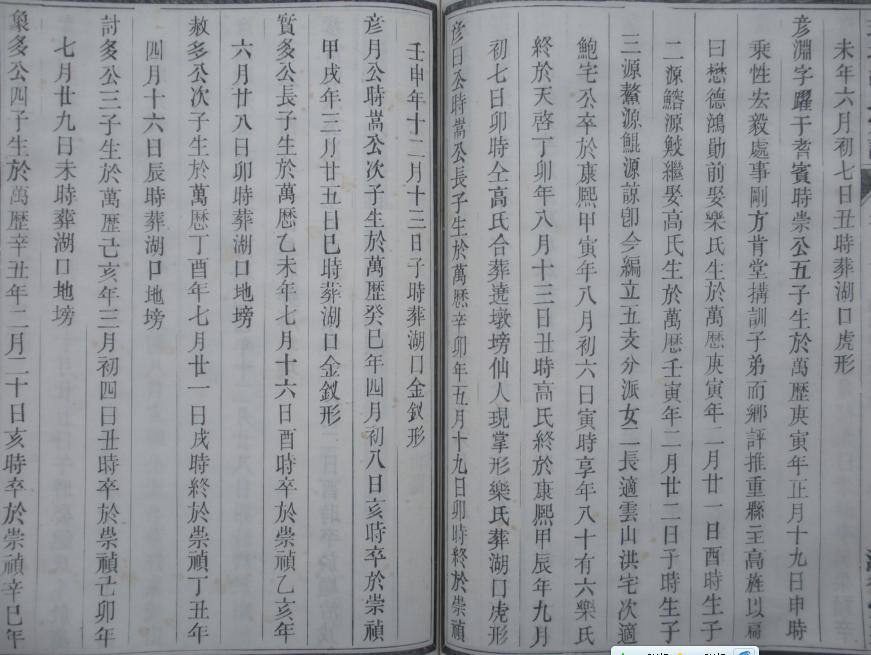 未年六月初七日丑時葬湖口虎形
彦淵字躍于耆賓時崇公五子生於萬歷庚寅年正月十九日申時
乘性宏毅處事剛方肯堂搆訓子弟而鄉評推重縣主高旌以扁
曰懋德鴻勛前娶樂氏生於萬厯庚寅年二月廿一日酉時生子
二源鰡源鮁繼娶高氏生於萬厯壬寅年二月廿二日子時生子
三源鰲源鯤源諒卽今編立五支分派女二長適雲山洪宅次適
鮑宅公卒於康熙甲寅年八月初六日寅時享年八十有六樂氏
終於天啓丁卯年八月十三日丑時高氏終於康熙甲辰年九月
初七日卯時仝高氏合葬遶墩塝仙人現掌形樂氏葬湖口虎形
彦日公時嵩公長子生於萬厯辛卯年五月十九日卯時終於崇禎
壬申年十二月十三日子時葬湖口金釵形
彦月公時嵩公次子生於萬歷癸巳年四月初八日亥時卒於崇禎
甲戌年三月廿五日巳時葬湖口金釵形
賓多公長子生於萬厯乙未年七月十六日酉時卒於崇禎乙亥年
六月廿八日卯時葬湖口地塝
赦多公次子生於萬厯丁酉年七月廿一日戌時終於崇禎丁丑年
四月十六日辰時葬湖口地塝
討多公三子生於萬歷己亥年三月初四日丑時卒於崇禎己卯年
七月廿九日未時葬湖口地塝
多公四子生於萬歷辛丑年二月二十日亥時卒於崇禎辛巳年